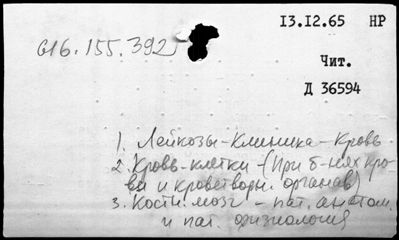 13.12.65 НР
616.155.392
Чит.
Д 36594
1. Лейкозы-Клиника-Кровь
2. Кровь-клетки-(При б-нях кро-
ви и кроветворн. органав)
3. Костн. мозг - пат. анатом.
и пат. физиология